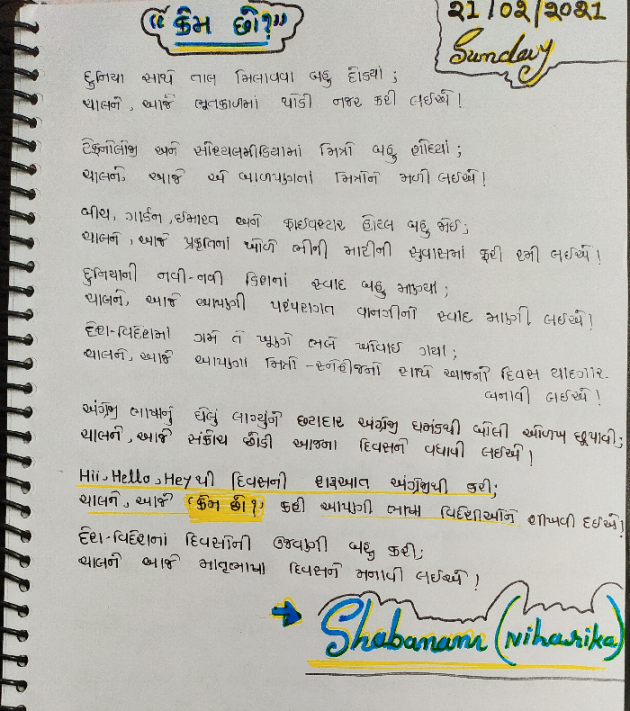 "કેમ છો?"
21/02/2021
Sunday
દુનિયા સાથે તાલ મિલાવવા બહુ દોડ્યાં;
ચાલને, આજે ભૂતકાળમાં થોડી નજર કરી લઈએ!
ટેકનોલોજી અને સોશ્યલમીડિયામાં મિત્રો બહુ શોધ્યાં;
ચાલને, આજે એ બાળપણનાં મિત્રોને મળી લઈએ!
બીચ, ગાર્ડન, ઈમારત અને ફાઈવસ્ટાર હોટલ બહુ જોઈ;
ચાલને, આજે પ્રકૃતિનાં ખોળે ભીની માટીની સુવાસમાં ફરી રમી લઈએ!
દુનિયાની નવી-નવી ડિશનાં સ્વાદ બહુ માણ્યાં;
ચાલને, આજે આપણી પરંપરાગત વાનગીનો સ્વાદ માણી લઈએ!
દેશ-વિદેશમાં ગમે તે ખૂણે ભલે ખોવાઈ ગયા;
ચાલને, આજે આપણા મિત્રો-સ્નેહીજનો સાથે આજનો દિવસ યાદગાર
બનાવી લઈએ!
અંગ્રેજી ભાષાનું ઘેલું લાગ્યુંને છટાદાર અંગ્રેજી ઘમંડથી બોલી ઓળખ છૂપાવી;
ચાલને, આજે સંકોચ છોડી આજના દિવસને વધાવી લઈએ!
Hii, Hello, Hey થી દિવસની શરૂઆત અંગ્રેજીથી કરી;
ચાલને, આજે "કેમ છો?" કહી આપણી ભાષા વિદેશીઓને શીખવી દઈએ!
દેશ-વિદેશનાં દિવસોની ઉજવણી બહુ કરી;
ચાલને આજે માતૃભાષા દિવસને મનાવી લઈએ!
Shabanam (Niharika)